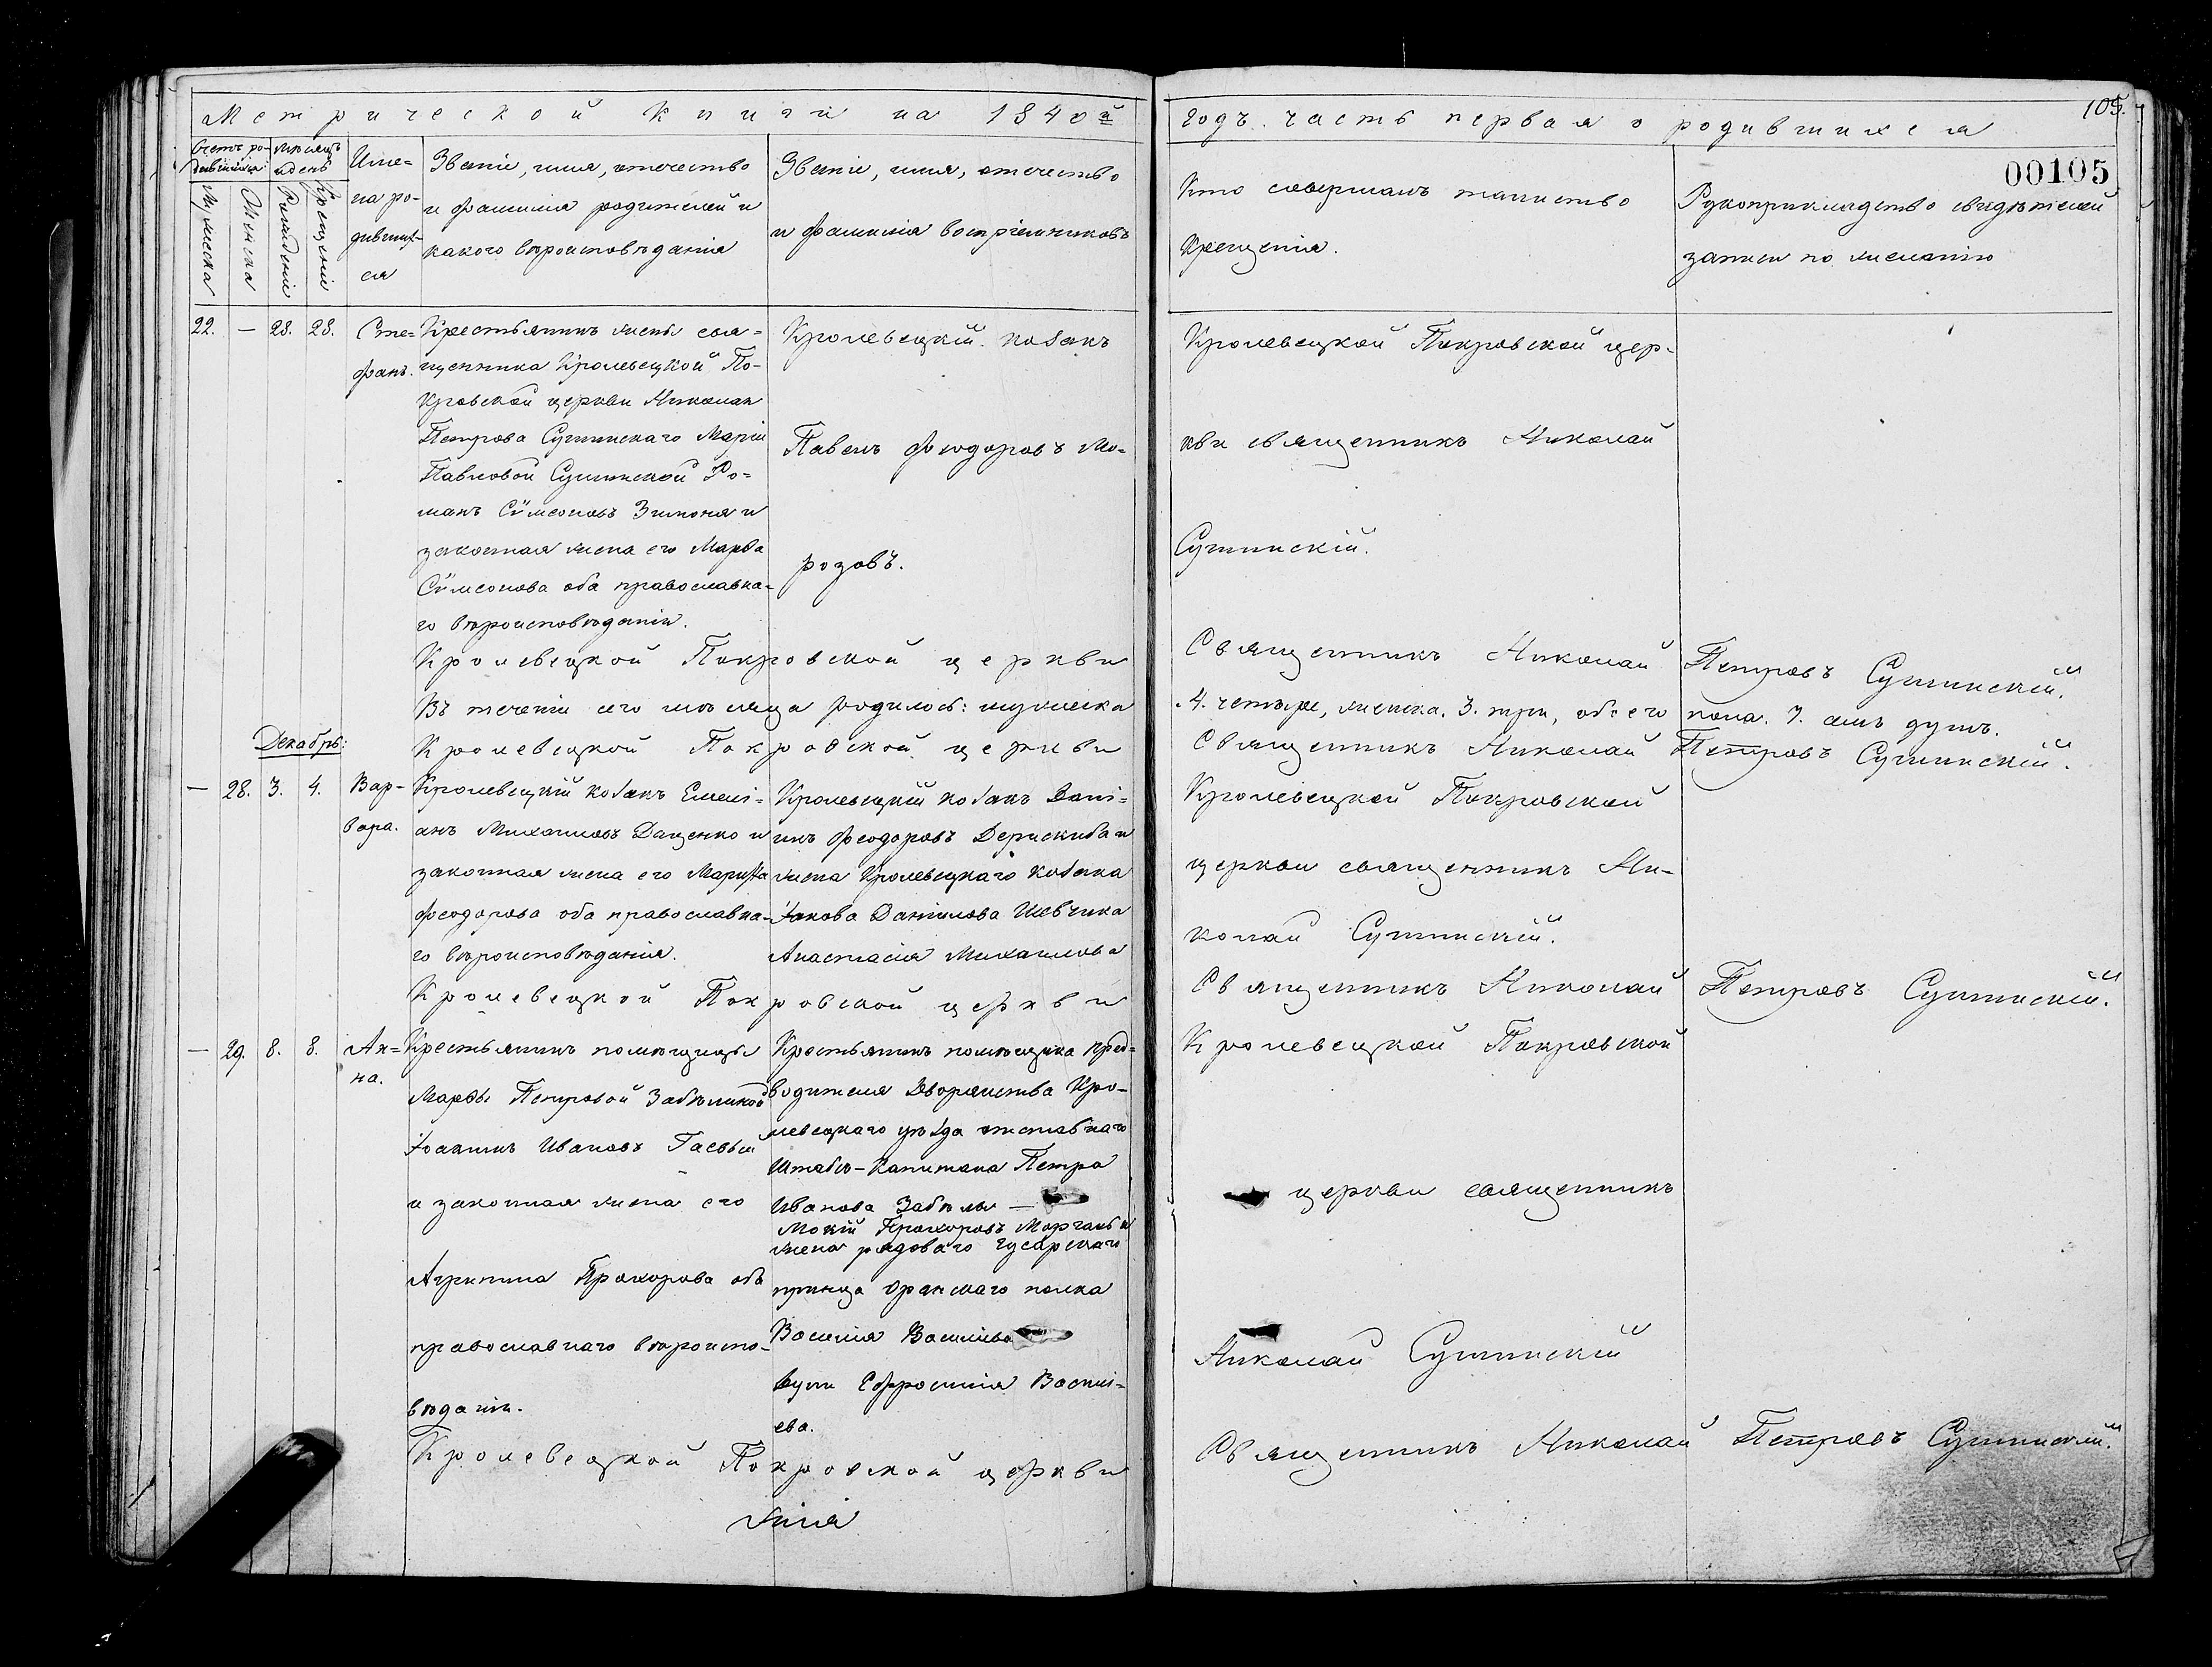 Метрической книги на 1840й
годъ. часть первая о родившихся
105.
00105
Счетъ ро-
дившихся
Мѣсяцъ
и день
Мужеска
Женска
Рожденія
Крещенія
Име-
на ро-
дивших-
ся
Званіе, имя, отечество
и фамилія родителей и
какого вѣроисповѣданія
Званіе, имя, отечество
и фамилія воспріемниковъ
Кто совершалъ таинство
Крещенія.
Рукоприкладство свидѣтелей
записи по желанію
22. — 28. 28.
Сте-
фанъ.
Крестьянинъ жены свя-
щенника Кролевецкой По-
кровской церкви Николая
Петрова Сушинскаго Маріи
Павловой Сушинской Ро-
манъ Сѵмеоновъ Зимоня и
законная жена его Марѳа
Сѵмеонова оба православна-
го вѣроисповѣданія.
Кролевецкій козакъ
Павелъ Феодоровъ Мо-
розовъ.
Кролевецкой Покровской цер-
кви священникъ Николай
Сушинскій.
Кролевецкой Покровской церкви
Священникъ Николай Петровъ Сушинскій.
Въ теченіи сего мѣсяца родилось: мужеска
4. четыре, женска. 3. три, обоего пола. 7. семь душъ.
Декабрь:
Кролевецкой Покровской церкви
Священникъ Николай Петровъ Сушинскій.
— 28. 3. 4.
Вар-
вара.
Кролевецкій козакъ Емелі-
анъ Михаиловъ Даценко и
законная жена его Марѳа
Феодорова оба православна-
го вѣроисповѣданія.
Кролевецкій козакъ Дані-
илъ Феодоровъ Дерискиба и
жена Кролевецкаго козака
Іакова Даніилова Шевчика
Анастасія Михаилова
Кролевецкой Покровской
церкви священникъ Ни-
колай Сушинскій.
Кролевецкой Покровской церкви
Священникъ Николай Петровъ Сушинскій.
— 29. 8. 8.
Ан-
на.
Крестьянинъ помѣщицы
Марѳы Петровой Забѣлиной
Іоакимъ Ивановъ Гаевый
и законная жена его
Агрипина Прохорова оба
православнаго вѣроиспо-
вѣданія.
Крестьянинъ помѣщика пред-
водителя Дворянства Кро-
левецкаго уѣзда отставнаго
Штабсъ-Капитана Петра
Иванова Забѣлы —
Мокій Прохоровъ и
жена рядоваго Гусарскаго
принца Оранскаго полка
Василія Василіева
Ефросинія Василі-
ева.
Кролевецкой Покровской
церкви священникъ
Николай Сушинскій
Кролевецкой Покровской церкви
Священникъ Николай Петровъ Сушинскій.